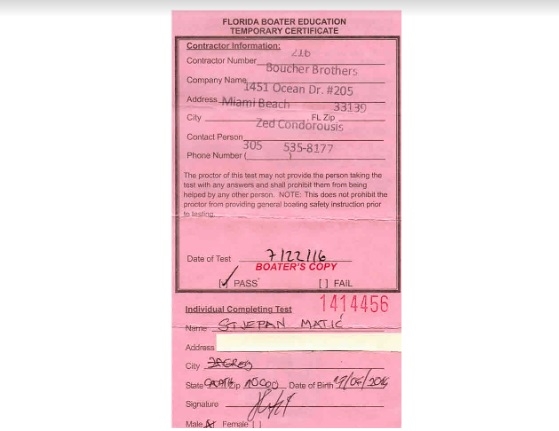 FLORIDA BOATER EDUCATION
TEMPORARY CERTIFICATE
Contractor Information:
Contractor Number 216
Company Name Boucher Brothers
Address 1451 Ocean Dr. #205
City Miami Beach FL Zip 33139
Contact Person Zed Condorousis
Phone Number ( 305 ) 535-8177
The proctor of this test may not provide the person taking the
test with any answers and shall prohibit them from being
helped by any other person. NOTE: This does not prohibit the
proctor from providing general boating safety instruction prior
to testing.
Date of Test 7/22/16
BOATER'S COPY
[✓] PASS [ ] FAIL
1414456
Individual Completing Test
Name STJEPAN MATIĆ
Address
City ZAGREB
State Zip 10000 Date of Birth
Signature
Male Female [ ]